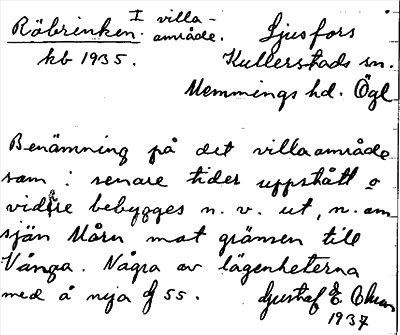 Röbrinken. I villa-
område. Ljusfors
kb 1935. Kullerstads sn.
Memmings hd. Ögl
Benämning på det villaområde
som i senare tider uppstått o
vidare bebygges n. v. ut, n. om
sjön Mårn mot gränsen till
Vånga. Några av lägenheterna
med å nya J 55. Gustaf E
1937